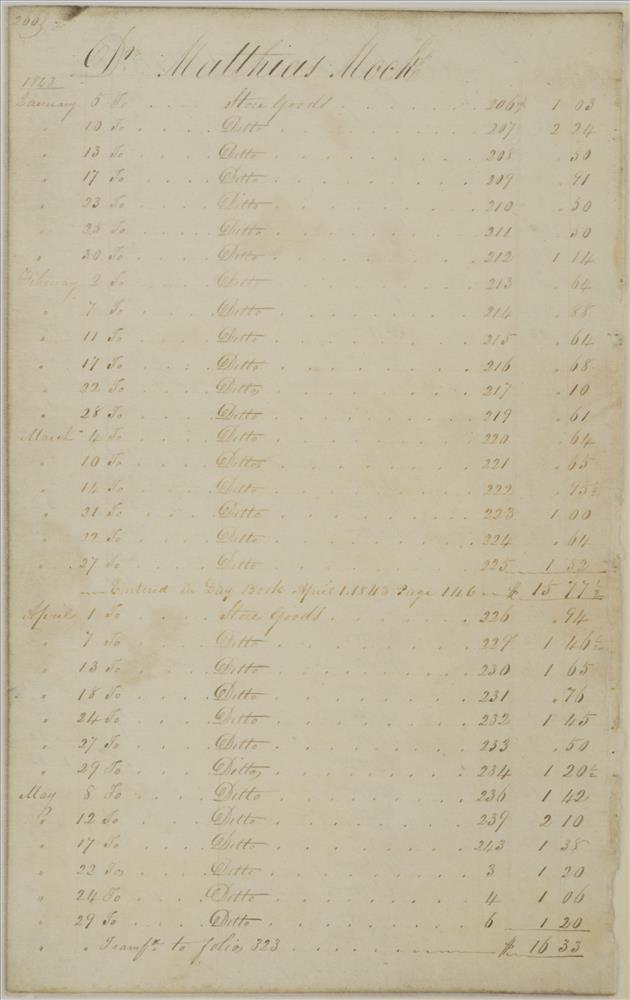 260
Dr. Matthias Mock
1843
January 5 To . . . Store Goods . . . . . . 206 1 03
" 10 To . . . . Ditto . . . . . . . . 207 2 24
" 13 To . . . . Ditto . . . . . . . . 208 . 50
" 17 To . . . . Ditto . . . . . . . . 209 . 91
" 23 To . . . . Ditto . . . . . . . . 210 . 50
" 25 To . . . . Ditto . . . . . . . . 211 . 50
" 30 To . . . . Ditto . . . . . . . . 212 1 14
February 2 To . . . . Ditto . . . . . . . . 213 . 64
" 7 To . . . . Ditto . . . . . . . . 214 . 88
" 11 To . . . . Ditto . . . . . . . . 215 . 64
" 17 To . . . . Ditto . . . . . . . . 216 . 68
" 22 To . . . . Ditto . . . . . . . . 217 . 10
" 28 To . . . . Ditto . . . . . . . . 219 . 61
March 4 To . . . . Ditto . . . . . . . . 220 . 64
" 10 To . . . . Ditto . . . . . . . . 221 . 65
" 14 To . . . . Ditto . . . . . . . . 222 . 75½
" 21 To . . . . Ditto . . . . . . . . 223 1 00
" 22 To . . . . Ditto . . . . . . . . 224 . 64
" 27 To . . . . Ditto . . . . . . . . 225 1 52
Entered in Day Book April 1. 1843 Page 146 $ 15 77½
April 1 To . . . . Store Goods . . . . . . 226 . 94
" 7 To . . . . Ditto . . . . . . . . 229 1 46½
" 13 To . . . . Ditto . . . . . . . . 230 1 65
" 18 To . . . . Ditto . . . . . . . . 231 . 76
" 24 To . . . . Ditto . . . . . . . . 232 1 45
" 27 To . . . . Ditto . . . . . . . . 233 . 50
" 29 To . . . . Ditto . . . . . . . . 234 1 20½
May 8 To . . . . Ditto . . . . . . . . 236 1 42
" 12 To . . . . Ditto . . . . . . . . 239 2 10
" 17 To . . . . Ditto . . . . . . . . 243 1 38
" 22 To . . . . Ditto . . . . . . . . 3 1 20
" 24 To . . . . Ditto . . . . . . . . 4 1 06
" 29 To . . . . Ditto . . . . . . . . 6 1 20
" " Transfr. to folio 323 . . . . . . $ 16 33